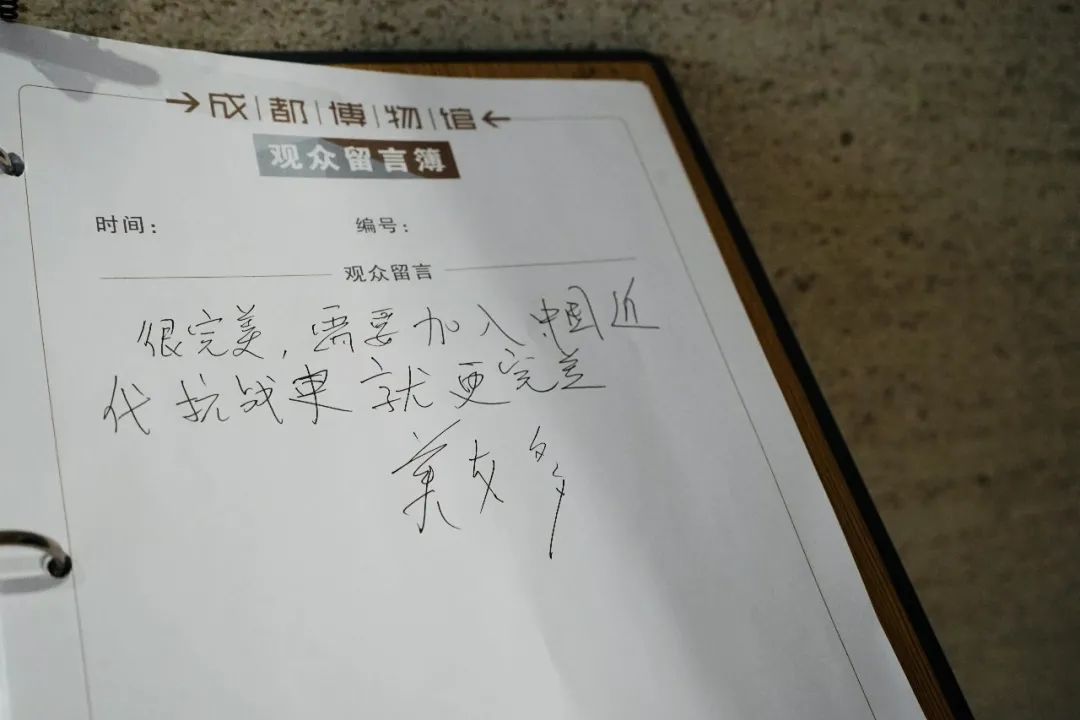 成都博物馆
观众留言簿
时间： 编号：
观众留言
很完美，需要加入中国近
代抗战史 就更完美